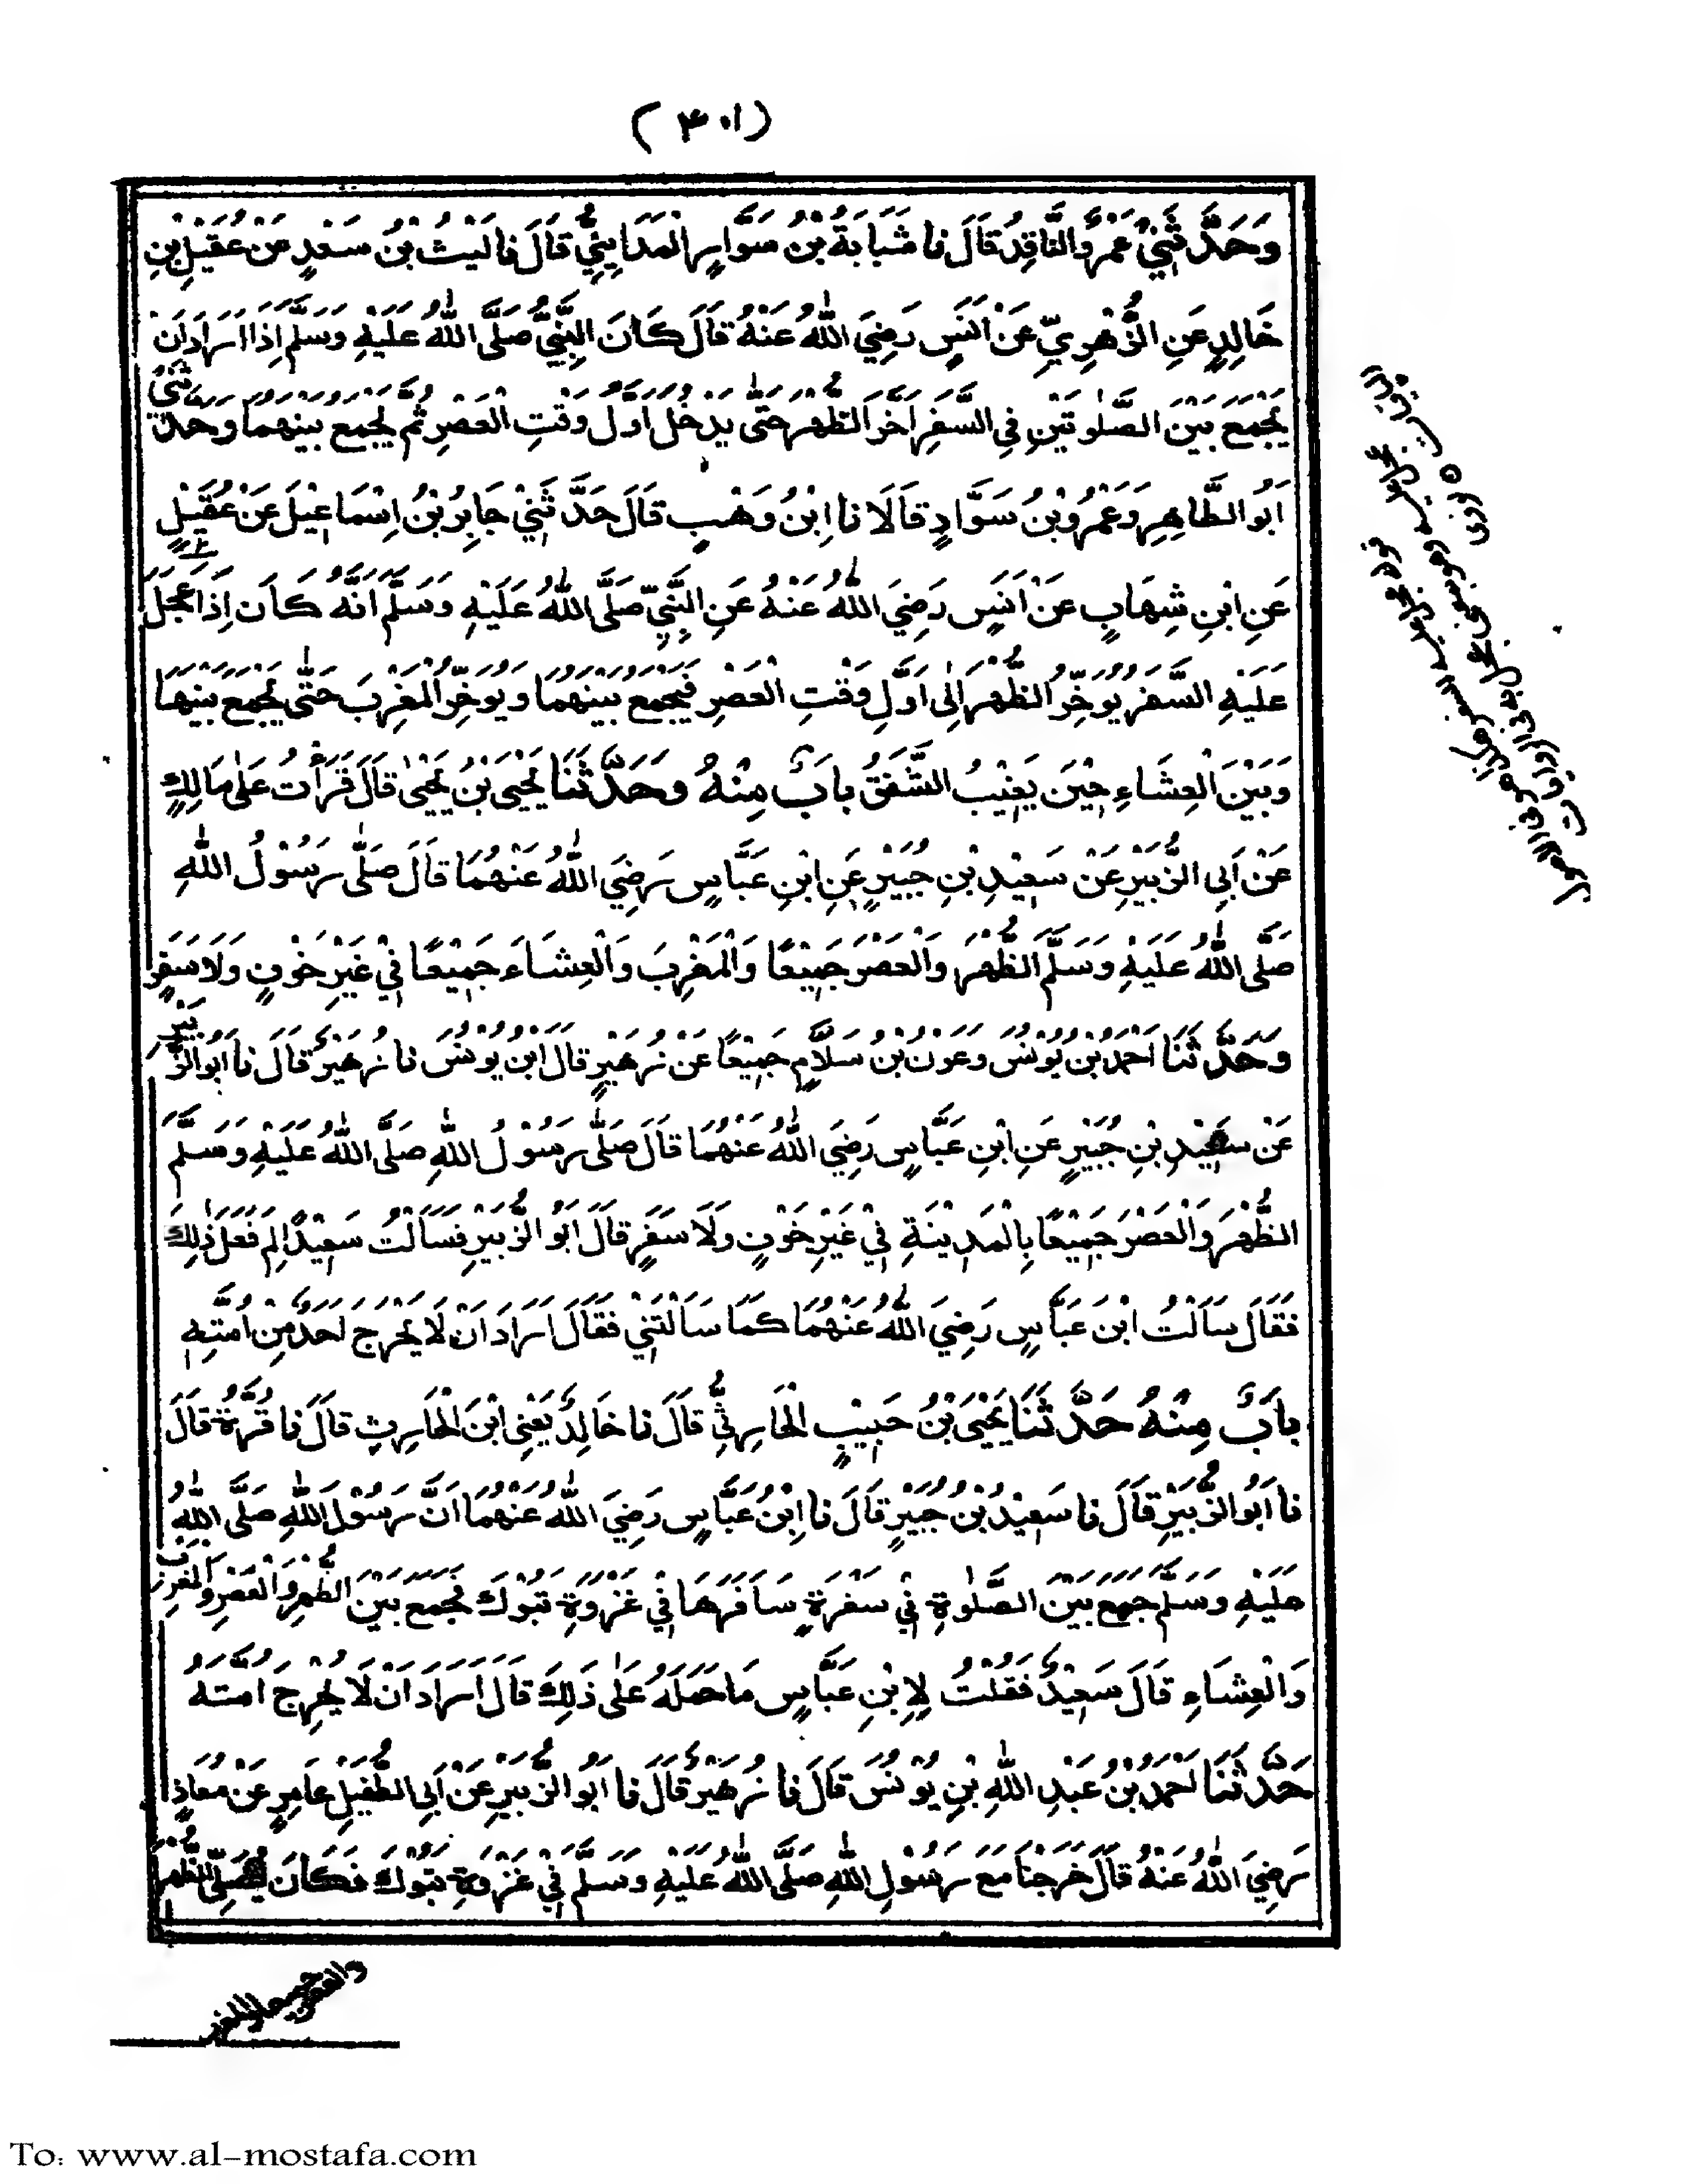 (٣٠١)
وَحَدَّثَنِيْ عَمْرٌو النَّاقِدُ قَالَ نا شَبَابَةُ بْنُ سَوَّارٍ الْمَدَايِنِيُّ قَالَ نا لَيْثُ بْنُ سَعْدٍ عَنْ عُقَيْلِ بْنِ
خَالِدٍ عَنِ الزُّهْرِيِّ عَنْ اَنَسٍ رَضِيَ اللهُ عَنْهُ قَالَ كَانَ النَّبِيُّ صَلَّى اللهُ عَلَيْهِ وَسَلَّمَ اِذَا اَرَادَ اَنْ
يَجْمَعَ بَيْنَ الصَّلٰوتَيْنِ فِي السَّفَرِ اَخَّرَ الظُّهْرَ حَتّٰى يَدْخُلَ اَوَّلُ وَقْتِ الْعَصْرِ ثُمَّ يَجْمَعُ بَيْنَهُمَا وَحَدَّثَنِيْ
اَبُو الطَّاهِرِ وَعَمْرُو بْنُ سَوَّادٍ قَالَا نا ابْنُ وَهْبٍ قَالَ حَدَّثَنِيْ جَابِرُ بْنُ اِسْمَاعِيْلَ عَنْ عُقَيْلٍ
عَنِ ابْنِ شِهَابٍ عَنْ اَنَسٍ رَضِيَ اللهُ عَنْهُ عَنِ النَّبِيِّ صَلَّى اللهُ عَلَيْهِ وَسَلَّمَ اَنَّهُ كَانَ اِذَا عَجَّلَ
عَلَيْهِ السَّفَرُ يُوَخِّرُ الظُّهْرَ اِلٰى اَوَّلِ وَقْتِ الْعَصْرِ فَيَجْمَعُ بَيْنَهُمَا وَيُوَخِّرُ الْمَغْرِبَ حَتّٰى يَجْمَعَ بَيْنَهَا
وَبَيْنَ الْعِشَاءِ حِيْنَ يَغِيْبُ الشَّفَقُ بَابٌ مِنْهُ وَحَدَّثَنَا يَحْيَى بْنُ يَحْيٰى قَالَ قَرَأْتُ عَلٰى مَالِكٍ
عَنْ اَبِي الزُّبَيْرِ عَنْ سَعِيْدِ بْنِ جُبَيْرٍ عَنِ ابْنِ عَبَّاسٍ رَضِيَ اللهُ عَنْهُمَا قَالَ صَلّٰى رَسُوْلُ اللهِ
صَلَّى اللهُ عَلَيْهِ وَسَلَّمَ الظُّهْرَ وَالْعَصْرَ جَمِيْعًا وَالْمَغْرِبَ وَالْعِشَاءَ جَمِيْعًا فِيْ غَيْرِ خَوْفٍ وَلَا سَفَرٍ
وَحَدَّثَنَا اَحْمَدُ بْنُ يُوْنُسَ وَعَوْنُ بْنُ سَلَّامٍ جَمِيْعًا عَنْ زُهَيْرٍ قَالَ ابْنُ يُوْنُسَ نا زُهَيْرٌ قَالَ نا اَبُو الزُّبَيْرِ
عَنْ سَعِيْدِ بْنِ جُبَيْرٍ عَنِ ابْنِ عَبَّاسٍ رَضِيَ اللهُ عَنْهُمَا قَالَ صَلّٰى رَسُوْلُ اللهِ صَلَّى اللهُ عَلَيْهِ وَسَلَّمَ
الظُّهْرَ وَالْعَصْرَ جَمِيْعًا بِالْمَدِيْنَةِ فِيْ غَيْرِ خَوْفٍ وَلَا سَفَرٍ قَالَ اَبُو الزُّبَيْرِ فَسَاَلْتُ سَعِيْدًا لِمَ فَعَلَ ذٰلِكَ
فَقَالَ سَاَلْتُ ابْنَ عَبَّاسٍ رَضِيَ اللهُ عَنْهُمَا كَمَا سَاَلْتَنِيْ فَقَالَ اَرَادَ اَنْ لَا يُحْرِجَ اَحَدًا مِنْ اُمَّتِهِ
بَابٌ مِنْهُ حَدَّثَنَا يَحْيَى بْنُ حَبِيْبٍ الْحَارِثِيُّ قَالَ نا خَالِدٌ يَعْنِى ابْنَ الْحَارِثِ قَالَ نا قُرَّةُ قَالَ
نا اَبُو الزُّبَيْرِ قَالَ نا سَعِيْدُ بْنُ جُبَيْرٍ قَالَ نا ابْنُ عَبَّاسٍ رَضِيَ اللهُ عَنْهُمَا اَنَّ رَسُوْلَ اللهِ صَلَّى اللهُ
عَلَيْهِ وَسَلَّمَ جَمَعَ بَيْنَ الصَّلٰوةِ فِيْ سَفْرَةٍ سَافَرَهَا فِيْ غَزْوَةِ تَبُوْكَ فَجَمَعَ بَيْنَ الظُّهْرِ وَالْعَصْرِ وَالْمَغْرِبِ
وَالْعِشَاءِ قَالَ سَعِيْدٌ فَقُلْتُ لِابْنِ عَبَّاسٍ مَا حَمَلَهُ عَلٰى ذٰلِكَ قَالَ اَرَادَ اَنْ لَا يُحْرِجَ اُمَّتَهُ
حَدَّثَنَا اَحْمَدُ بْنُ عَبْدِ اللهِ بْنِ يُوْنُسَ قَالَ نا زُهَيْرٌ قَالَ نا اَبُو الزُّبَيْرِ عَنْ اَبِي الطُّفَيْلِ عَامِرٍ عَنْ مُعَاذٍ
رَضِيَ اللهُ عَنْهُ قَالَ خَرَجْنَا مَعَ رَسُوْلِ اللهِ صَلَّى اللهُ عَلَيْهِ وَسَلَّمَ فِيْ غَزْوَةِ تَبُوْكَ فَكَانَ يُصَلِّى الظُّهْرَ
والعصر جميعا والمغرب
To: www.al-mostafa.com